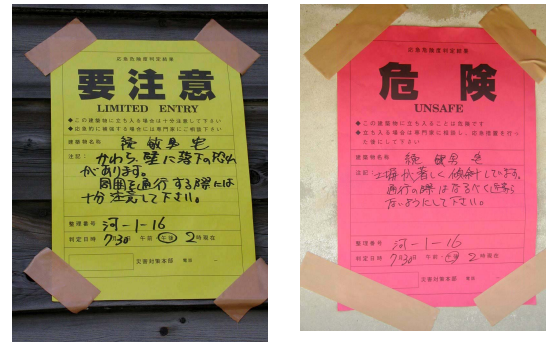 応急危険度判定結果
要注意
LIMITED ENTRY
◆この建築物に立ち入る場合は十分注意して下さい
◆応急的に補強する場合には専門家にご相談下さい
建築物名称 敏男宅
注記： かわら、壁に落下の恐れ
があります。
周囲を通行する際には
十分注意して下さい。
整理番号 河-1-16
判定日時 7月30日 午前 午後 2時現在
災害対策本部 電話
応急危険度判定結果
危険
UNSAFE
◆この建築物に立ち入ることは危険です
◆立ち入る場合は専門家に相談し、応急措置を行っ
た後にして下さい
建築物名称 敏男宅
注記： 土塀が著しく傾斜しています。
通行の際はなるべく近寄ら
ないようにして下さい。
整理番号 河-1-16
判定日時 7月30日 午前 午後 2時現在
災害対策本部 電話